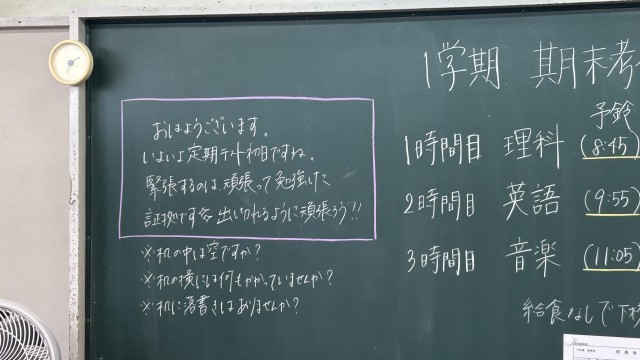 おはようございます。
いよいよ定期テスト初日ですね。
緊張するのは、頑張って勉強した
証拠です。全て出しきれるように頑張ろう!!
※机の中は空ですか?
※机の横には何もかかっていませんか?
※机に落書きはありませんか?
1学期 期末考
予鈴
1時間目 理科 (8:45)
2時間目 英語 (9:55)
3時間目 音楽 (11:05)
給食なしで下校